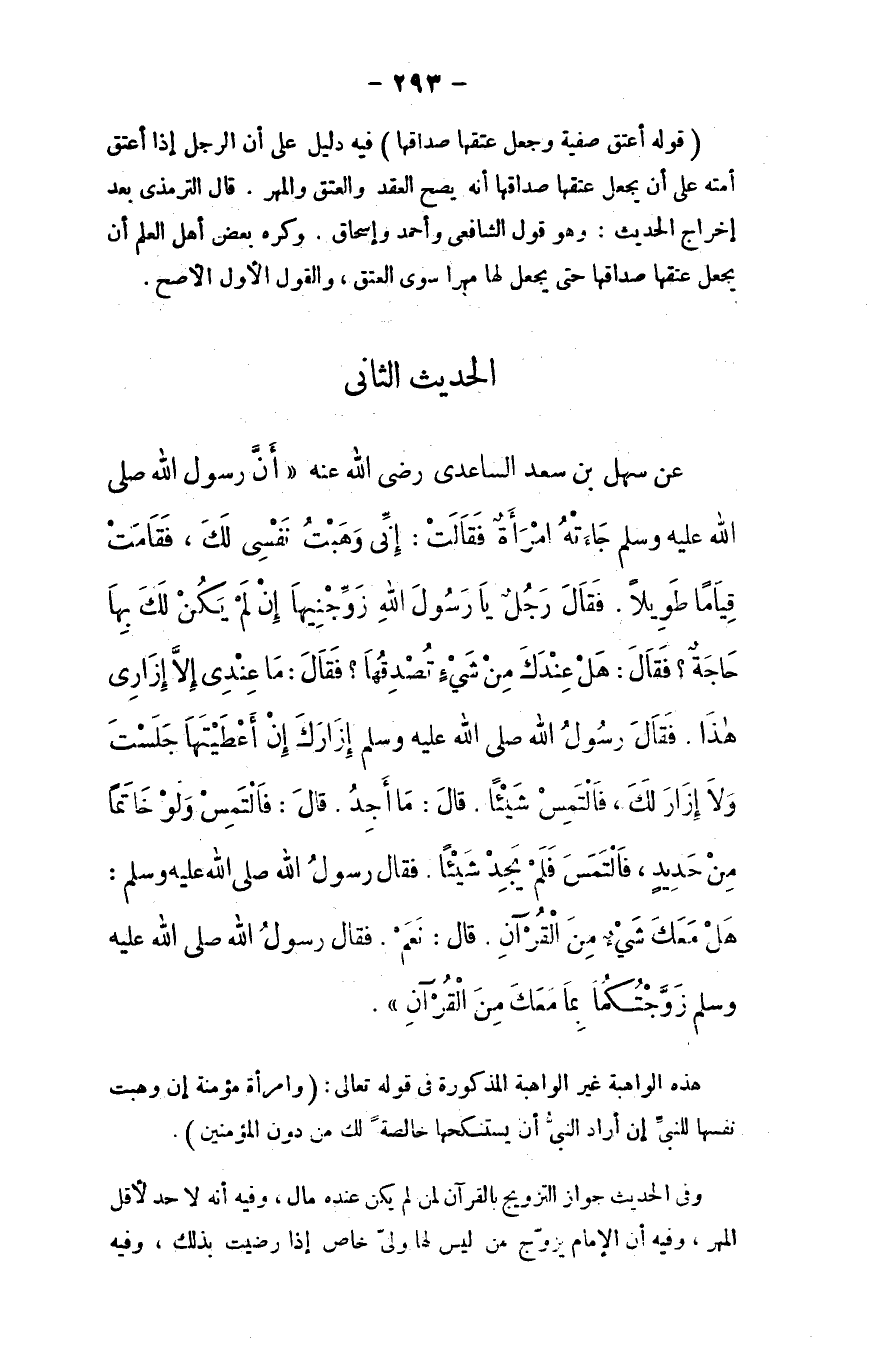 - ٢٩٣ -
( قوله أعتق صفية وجعل عتقها صداقها ) فيه دليل على أن الرجل إذا أعتق
أمته على أن يجعل عتقها صداقها أنه يصح العقد والعتق والمهر . قال الترمذى بعد
إخراج الحديث : وهو قول الشافعى وأحمد وإسحاق . وكره بعض أهل العلم أن
يجعل عتقها صداقها حتى يجعل لها مهرا سوى العتق ، والقول الأول الأصح .
الحديث الثانى
عن سهل بن سعد الساعدى رضى الله عنه « أَنَّ رسول الله صلى
الله عليه وسلم جَاءَتْهُ امْرَأَةٌ فَقَالَتْ : إِنِّى وَهَبْتُ نَفْسِى لَكَ ، فَقَامَتْ
قِيَامًا طَوِيلاً . فَقَالَ رَجُلٌ يَا رَسُولَ اللهِ زَوِّجْنِيهَا إِنْ لَمْ يَكُنْ لَكَ بِهَا
حَاجَةٌ ؟ فَقَالَ : هَلْ عِنْدَكَ مِنْ شَيْءٍ تُصْدِقُهَا ؟ فَقَالَ : مَا عِنْدِى إِلاَّ إِزَارِى
هٰذَا . فَقَالَ رسُولُ الله صلى الله عليه وسلم إِزَارَكَ إِنْ أَعْطَيْتَهَا جَلَسْتَ
وَلاَ إِزَارَ لَكَ ، فَالْتَمِسْ شَيْئًا . قالَ : مَا أَجِدُ . قالَ : فَالْتَمِسْ وَلَوْ خَاتَمًا
مِنْ حَدِيدٍ ، فَالْتَمَسَ فَلَمْ يَجِدْ شَيْئًا . فقال رسولُ الله صلى الله عليه وسلم :
هَلْ مَعَكَ شَيْءٌ مِنَ الْقُرْآنِ . قال : نَعَمْ . فقال رسولُ الله صلى الله عليه
وسلم زَوَّجْتُكَهَا بِمَا مَعَكَ مِنَ الْقُرْآنِ » .
هذه الواهبة غير الواهبة المذكورة فى قوله تعالى : ( وامرأة مؤمنة إن وهبت
نفسها للنبىِّ إن أراد النبىُّ أن يستنكحها خالصةً لك من دون المؤمنين ) .
وفى الحديث جواز التزويج بالقرآن لمن لم يكن عنده مال ، وفيه أنه لا حد لأقل
المهر ، وفيه أن الإمام يزوّج من ليس لها ولىّ خاص إذا رضيت بذلك ، وفيه